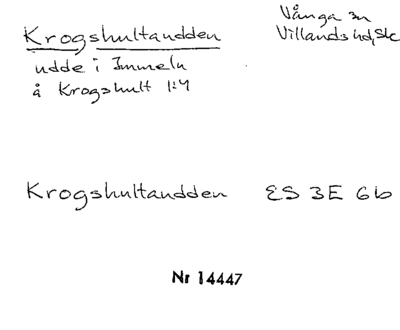 Krogshultaudden
Vånga sn
Villands hd, Sk
udde i Immeln
å Krogshult 1:4
Krogshultaudden ES 3E 6b
Nr 14447